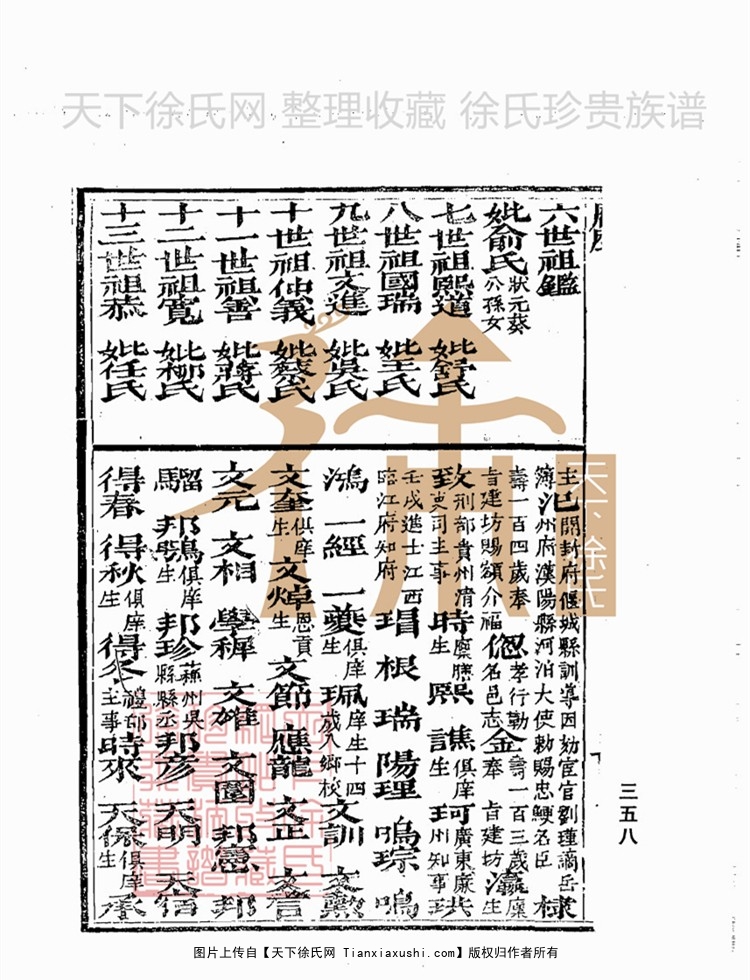 天下徐氏网 整理收藏 徐氏珍贵族谱
六世祖鑑
妣俞氏狀元葵公孫女
七世祖熙道 妣舒氏
八世祖國瑞 妣王氏
九世祖文進 妣吳氏
十世祖仲義 妣蔡氏
十一世祖善 妣蔣氏
十二世祖寬 妣柳氏
十三世祖恭 妣任氏
主巳開封府偃城縣訓導因劾宦官劉瑾謫岳
簿汜州府漢陽縣河泊大使勅賜忠鯁名臣 棣
壽一百四歲奉 孝行勅 壽一百三歲廩
旨建坊賜額介福 偲名邑志金奉 旨建坊瀛生
致刑部貴州清 時廩膳 熙 譙俱庠 珂廣東廉珙
至吏司主事 生 謹生 州知事
壬戌進士江西
臨江府知府 瑁 根 瑞 陽 理 鳴琮 鳴
鴻 一經 一夔俱庠生 珮庠生十四歲入鄉校 文訓 文
文奎俱庠生 文焯恩貢生 文節 應龍 文正 文言
文元 文相 學稺 文雄 文圍 邦憲 邦
騮 邦鳴俱庠 邦珍蘇州吳 邦彥 天明 天宿
驅 邦鶚生 縣縣丞
得春 得秋俱庠生 得冬禮部主事 時來 天保俱庠生 承
三五八
天下徐氏
图片上传自【天下徐氏网 Tianxiaxushi.com】版权归作者所有